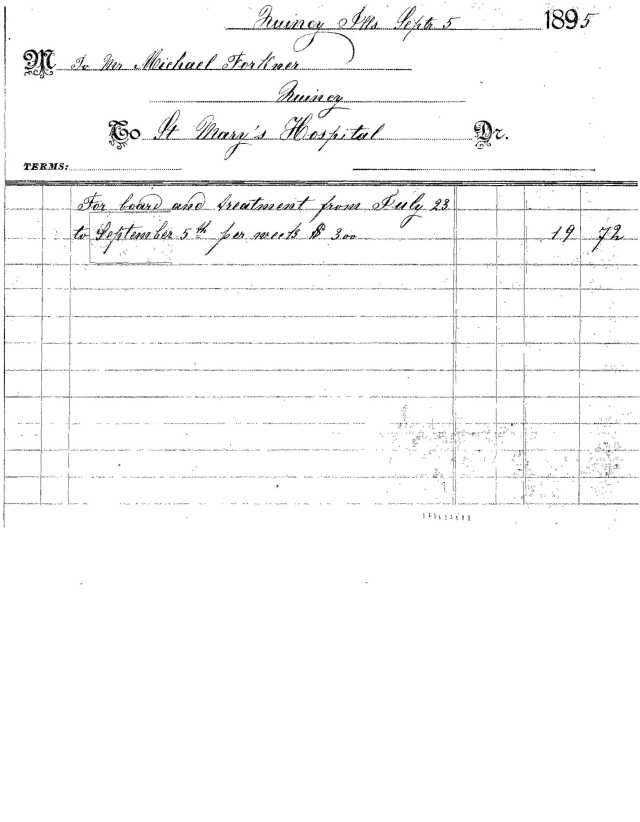 Quincy Ills Septr 5 1895
M To Mr Michael Forkner
Quincy
To St Mary's Hospital Dr.
TERMS:
For board and treatment from July 23
to September 5th per week $ 3.00 19 72